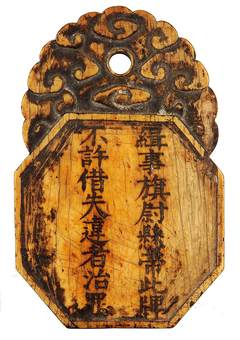 緝事旗尉懸帶此牌
不許借失違者治罪